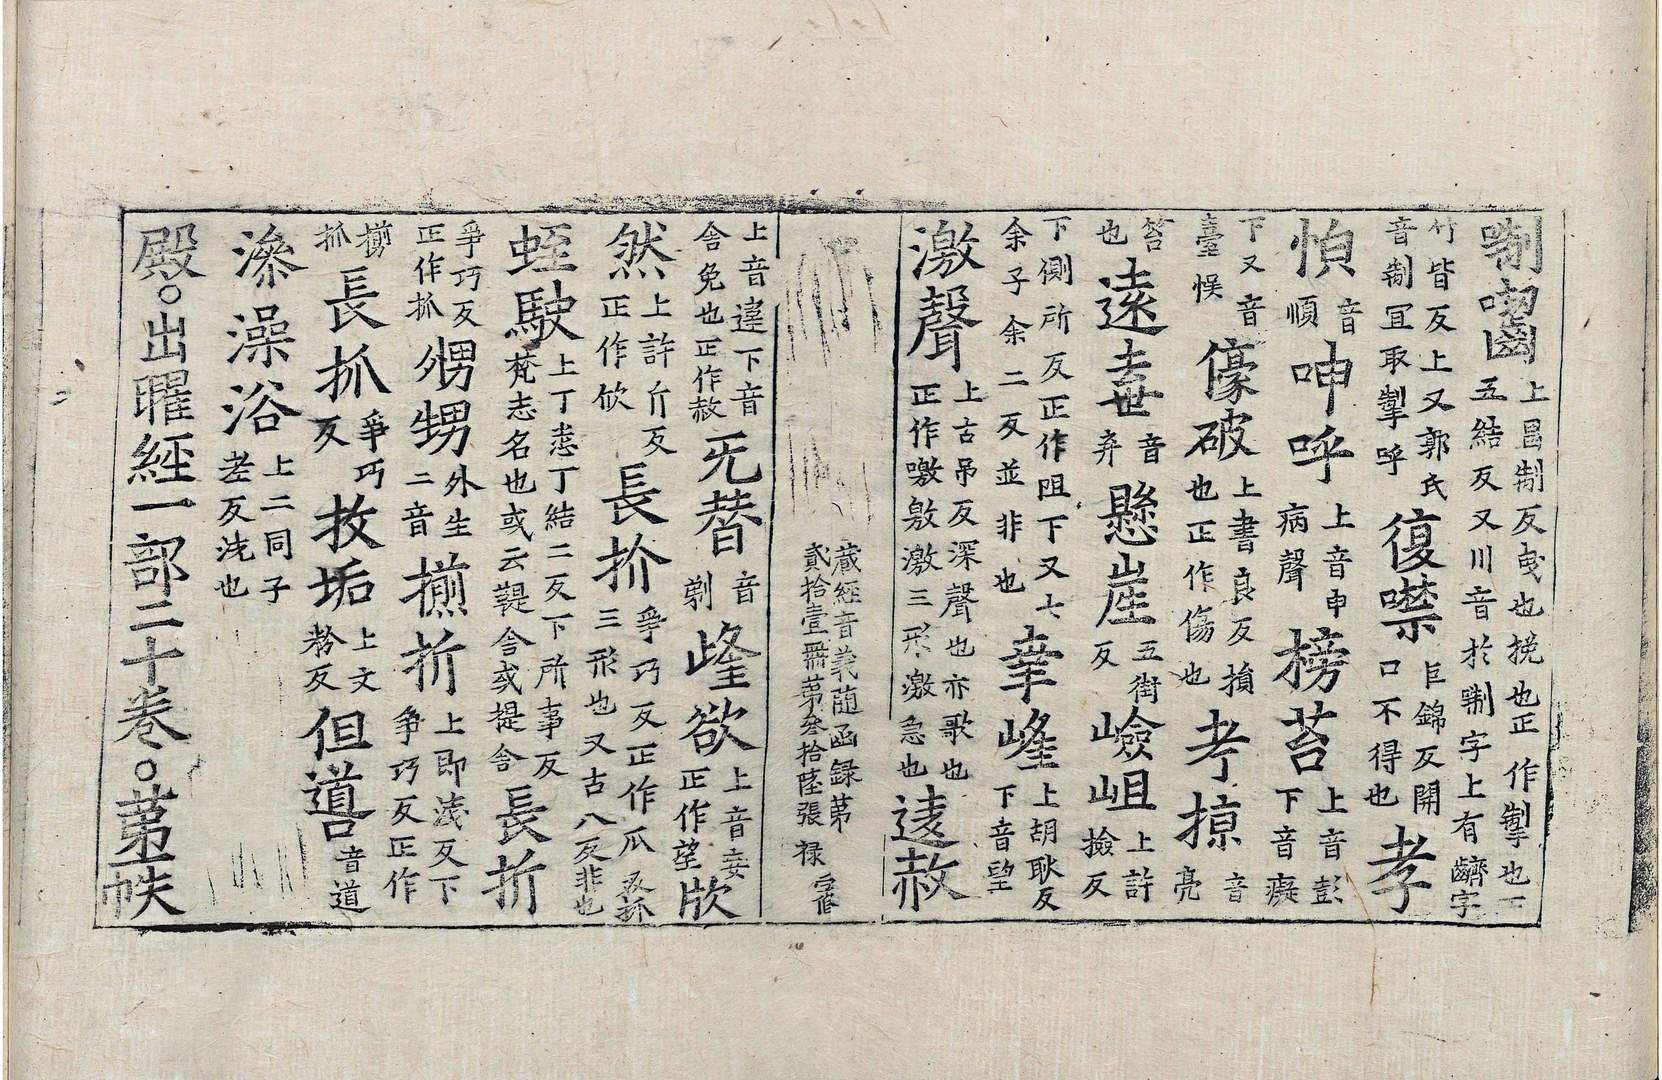 㓨嚙上昌制反曳也挽也正作掣也下五結反又川音於㓨字上有齭字
竹皆反上又郭氏音制冝取掣呼復噤巨錦反開口不得也孝
㥧音順呻呼上音申病聲榜苔上音彭下音癡
下又音臺悞傢破上書良反損也正作傷也考掠音亮
笞也逺𠦪音弃懸崖五街反嶮岨上許撿反
下側所反正作阻下又七余子余二反並非也㚔峰上胡耿反下音望
激聲上古吊反深聲也亦歌也正作噭敫激三形激急也逺赦
藏經音義蓲函録第貳拾壹冊第叄拾陸張 禄
上音違下音舎免也正作赦旡替音剃峰欲上音妄正作望㰟
然上許斤反正作欣長抓爭巧反正作爪三形也又古八反非也長折
蛭駛上丁悉丁結二反下所事反梵志名也或云鞮舎或提舎
爭巧反正作抓甥甥外生二音揃折上即淺反下爭巧反正作
揃抓長抓爭巧反抆垢上文粉反但噵音道
㵕澡浴上二同子老反洗也
殿○出曜經一部二十卷○苐一帙